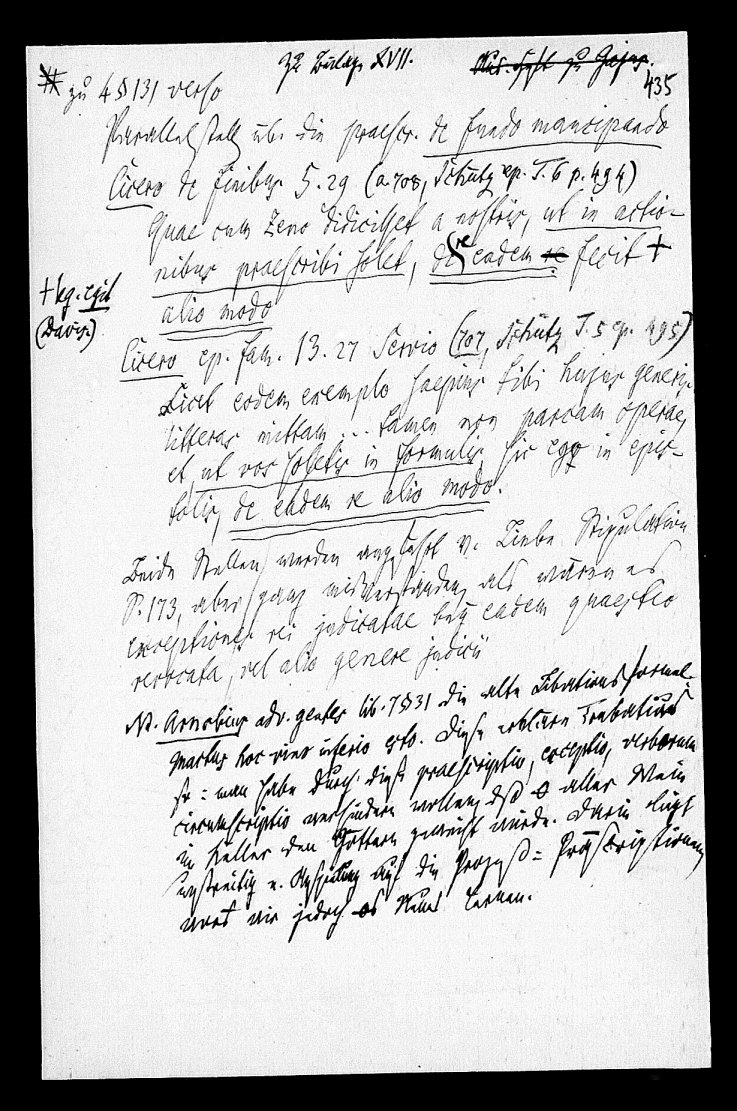 zu Beilage XVII.
435
zu 4 § 131 verso
Parallelstelle über die praescr. de fundo mancipando
Cicero de finibus 5.29 (a. 708, Schütz ep. T. 6 p. 494)
Quae cum Zeno didicisset a nostris, ut in actio-
nibus praescribi solet, de re eadem re fecit +
alio modo
+ leg. egit
(Davis.)
Cicero ep. fam. 13.27 Servio (707, Schütz T. 5 p. 495)
Licet eodem exemplo saepius tibi hujus generis
litteras mittam ... tamen non parcam operae,
et, ut vos soletis in formulis, sic ego in epis-
tolis, de eadem re alio modo.
Beide Stellen werden angeführt v. Liebe Stipulation
S. 173, aber ganz misverstanden, als wären es
exceptiones rei judicatae bey eadem quaestio
revocata, vel alio genere judicii
Nt. Arnobius adv. gentes lib. 7 § 31 die alte Librations formel
mactus hoc vino inferio esto. Diese erkläre Trebatius
so: man habe durch diese praescriptio, exceptio, verborum
circumscriptio verhindern wollen, daß aller Wein
im Keller den Göttern geweiht würde. Darin liegt
unstreitig e. Anspielung auf die Prozeß=Präscriptionen
woraus wir jedoch Neues lernen.